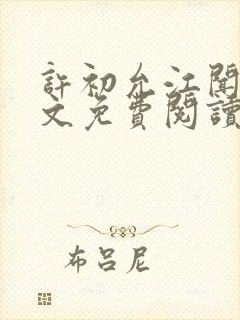 許初允江聞
文免費閱讀
布呂尼